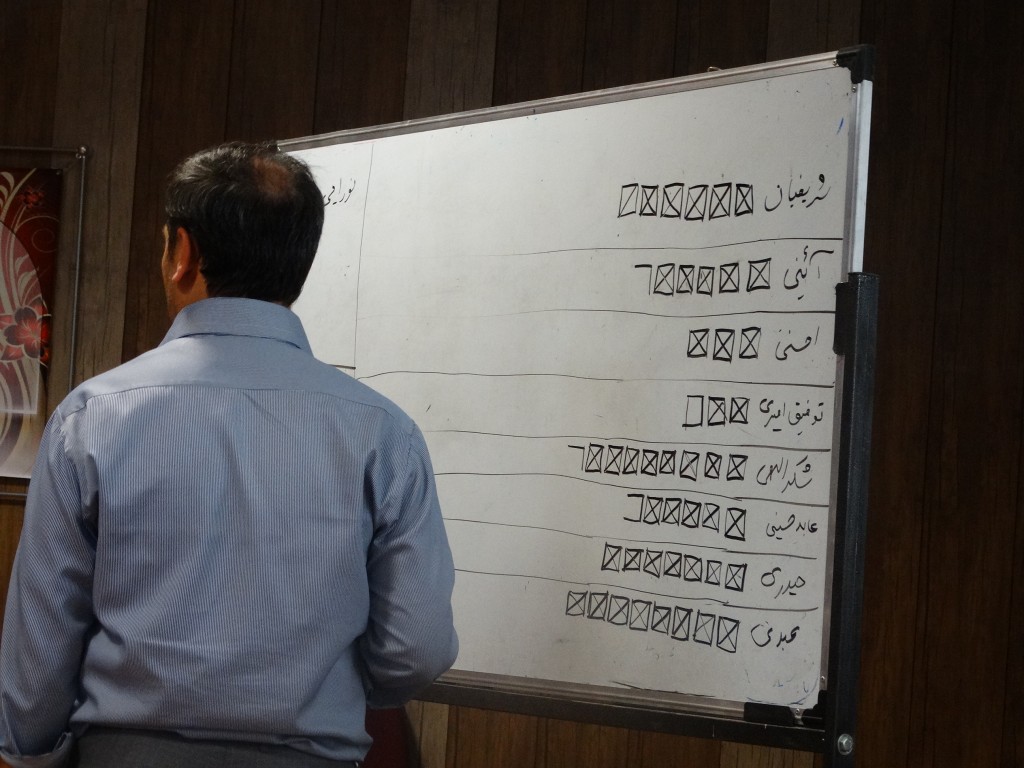 شریفیان
آئینی
احسنی
توفیق امیری
شکرالهی
عابد حسینی
حیدری
نورایی